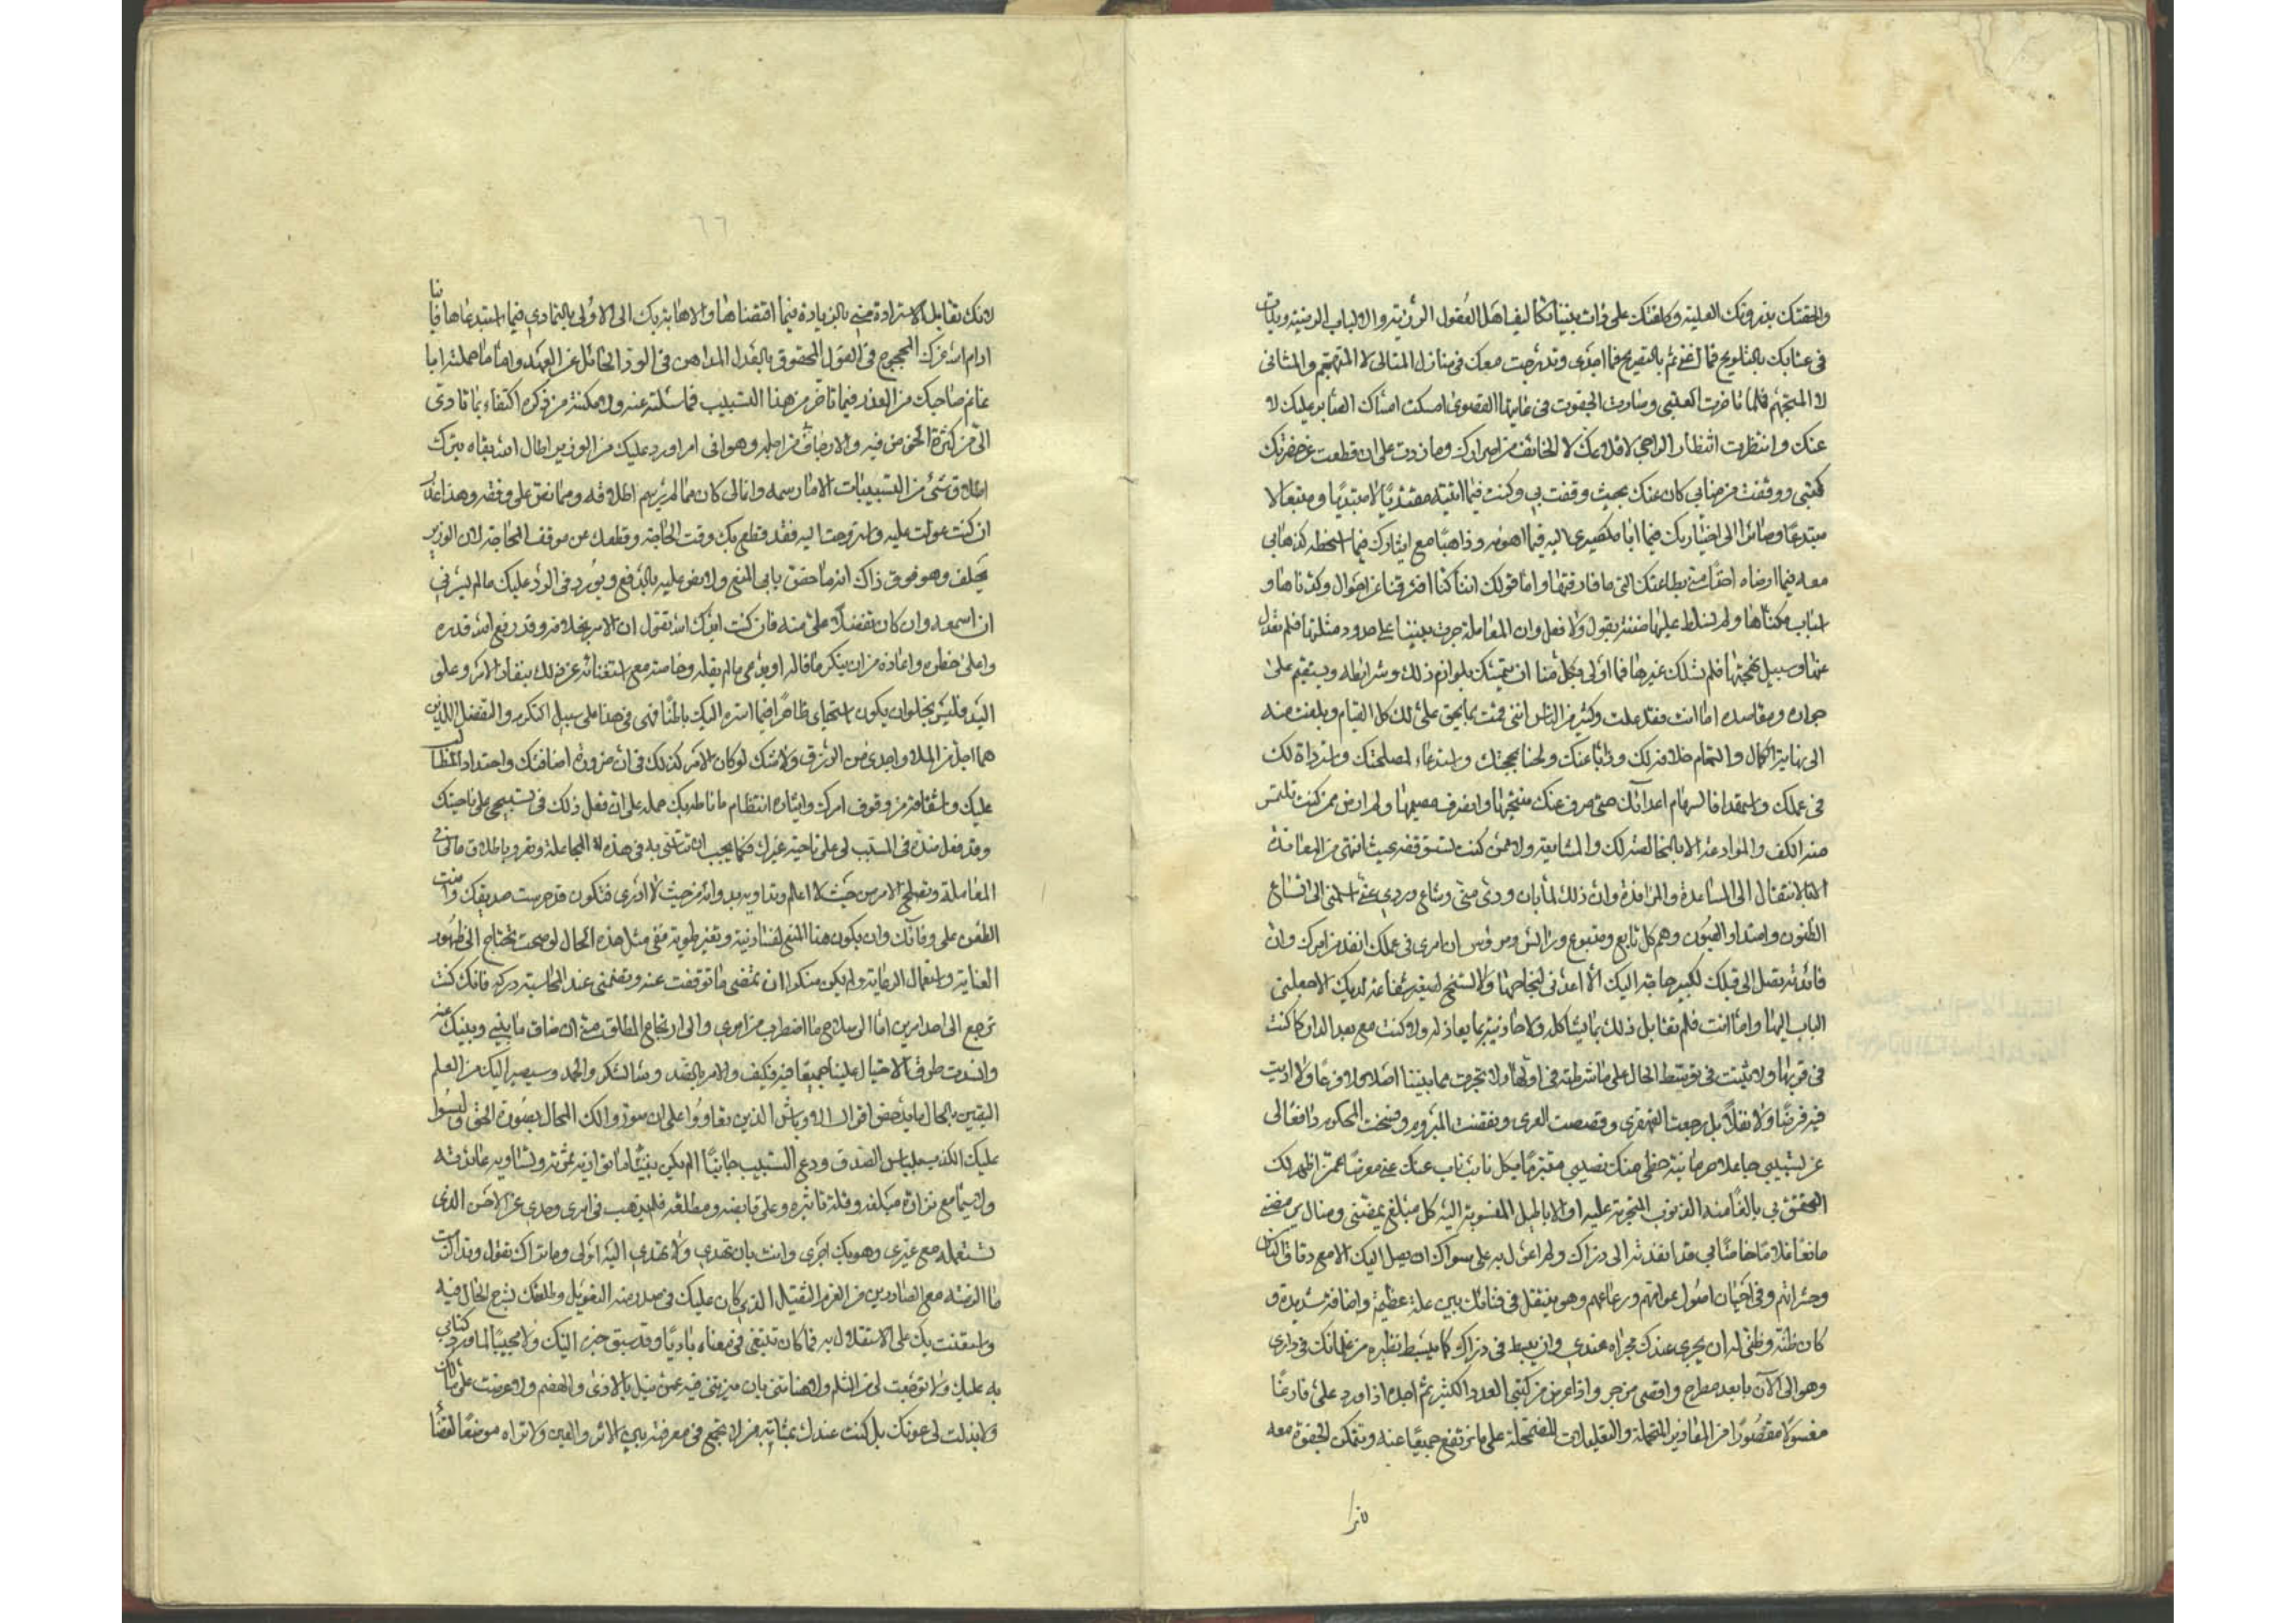 والحقتك بذروتك العلية وكلفتك على ذات بيننا تكاليف اهل العقول الرزينة والالباب الرضية وبدات
في عتابك بالتلويح فما اغنى ثم بالتصريح فما اجدى وتدرجت معك في منازل المتالي لا المتهجم والمتاني
لا المتجهم فلما تاخرت العتبى وصارت الجفوت في غايتها القصوى امسكت امساك العاتب عليك لا
عنك وانتظرت انتظار الراجي لاقلاعك لا الخائف من اصرارك وما زدت على ان قطعت عن حضرتك
كتبي ووقفت من منابي كان عنك بحيث وقفت بي وكنت فيما اتيته مقتديا لا مبتديا ومتبعا لا
مبتدعا وصائرا الى اختيارك فيما اباه كمصيري اليه فيما اهواه وذاهبا مع ايثارك فيما اسخطه كذهابي
معه فيما ارضاه اخذا مني بطاعتك التي ما فارقتها واما قولك اننا كنا افترقنا عن احوال وكدناها و
اسباب مكناها ولم نسلط عليها ضنة بقول ولا فعل وان المعاملة جرت بيننا على حدود مثلتها فلم نعدل
عنها وسبيل نهجتها فلم نسلك غيرها فما اولى بكل منا ان يتمسك بلوازم ذلك وشرايطه ويستقيم على
جواده ومقاصده اما انت فقد علمت وكثير من الناس انني قمت بما يحق علي لك كل القيام وبلغت منه
الى نهاية الكمال والتمام خلافة لك وذبا عنك ولحنا بحجتك واستدعاء لمصلحتك واسترداة لك
في عملك واستهدافا لسهام اعدائك حتى صرف عنك منجها وانصرف مصيبها ولم ارض ممن كنت تلتمس
منه الكف والموادعة الا بالمخالصة لك والمشايعة ولا ممن كنت تستوقفه بحيث انتهى من المعاندة
الا بالانتقال الى المساعدة والمرافدة وان ذلك لما بان ودي مني وشاع وردي عني اسلمني الى اتساع
الظنون وامتداد العيون وهم كل تابع ومتبوع ورائس ومرؤس ان امري في عملك انفذ من امرك وان
فائدته تصل الى قبلك لكبير حاجة اليك الا اعدني لنجاحها ولا لتسنح لصغير شفاعة لديك الا جعلني
الباب اليها واما انت فلم تقابل ذلك بما يشاكله ولا جازيته بما يعادله ولا كنت مع بعد الدار كما كنت
في قربها ولا تثبت في توسط الحال على ما شرطته في اولها ولا تحرمت مما بيننا اصلا ولا فرعا ولا اديت
فيه فرضا ولا نفلا بل رجعت القهقرى وقصمت العرى ونقضت المبروم وفسخت المحكوم دافعا لي
عن تسبيبي جاعلا حرمانية حظي منك نصيبي متبرما بكل نائب ناب عنك عني معرضا عمن اظهر لك
التحقق بي بالغا منه الذنوب المتجرمة عليه او الاباطيل المنسوبة اليه كل مبلغ يمضني ومنال يرمضني
مانعا غلاما خاصا بي قد انفذته الى دارك ولم اعول به على سواك ان يصل اليك الا مع دقاق الناس
وحشراتهم وفي احيان اصول عوامهم ورعاعهم وهو يتنقل في فنائك بين علة عظيمة واضافة شديدة و
كان ظنه وظني له ان يجري عندك مجراه عندي وان يبسط في دارك كما يبسط نظيره من غلمانك في داري
وهو الى الآن بابعد مطرح واقصى مزجر واذا عرض من كتبي العدد الكثير ثم اجله اذا ورد علي فارغا
مفسولا مقصورا من المعاذير المتمحلة والتعليلات المضمحلة على ما ترتفع جميعا عنه وتتمكن الجفوة معه
لانك
لانك تقابل الاسترادة مني بالزيادة فيما اقتضاها والاهابة بك الى الاولى بالتمادي فيما استدعاها فاننا
ادام الله عزك المحجوج في القول المحقوق بالعذل المداهن في الود الحائل عن العهد واما ما حملته ابا
غانم صاحبك من العذر فيما تاخر من هذا التسبيب فما سئلته عنه ولا مكنته من ذكره اكتفاء بما تادى
الي من كثرة الخوض فيه والارجاف من اجله وهو اني امرا ورد عليك من الوزير اطال الله بقاه بترك
اطلاق شئ من التسبيبات الا ما رسمه وان مالي كان مما لم يرسم اطلاقه ومما نص على وقفه وهذا عذر
ان كنت عولت عليه واستروحت اليه فقد قطع بك وقت الحاجة وقطعك عن موقف المحاجة لان الوزير
يحلف وهو فوق ذاك انه ما خص بابي المنع ولا نص عليه بالدفع ويورد في الرد عليك ما لم يسرني
ان اسمعه وان كان تفضلا علي منه فان كنت ايدك الله تقول ان الامر بخلافه وقد رفع الله قدره
واعلى خطره واعاذه من ان ينكر ما قاله او يدعي ما لم يقله وخاصة مع استغنائه عن ذلك بنفاذ الامر وعلو
اليد فليس يخلو ان يكون استحياي ظاهرا فيما اسره اليك باطنا فهي في هذا على سبيل التكرم والتفضل اللذين
هما اجل من الملا واجدى من الرزق ولا شك لو كان الامر كذلك في ان ضرورة اضافتك واحتداد المطالب
عليك واشفاقه من وقوف امرك وايثاره انتظام ما ناطه بك حمله على ان فعل ذلك في تسبيبي على ناحيتك
وقد فعل ضده في المسبب لي على ناحية غيرك فكما يجب ان تستثني به في هذه المجاملة وتفرد باطلاق مالي في
المعاملة وتصلح الامر من حيث لا اعلم وتداويه به وانه من حيث لا ادري فتكون قد حرست صديقك وامنت
الطعن على وفائك وان يكون هذا المنع لفساد نية وتغير طوية مني مثل هذه الحال لو صحت تحتاج الى ظهور
العناية واستعمال الرعاية ولم يكن منكرا ان تمضي ما توقفت عنه وتضمني عند المحاسبة دركه فانك كنت
ترجع الى احد امرين اما الى صلاح ما اضطرب من امري والى ارتجاع المطلق متى ان ضاق ما بيني وبينك عنه
وانسدت طرق الاحتيال علينا جميعا فيه فكيف والامر بالضد وبما لشكر والحمد وسيصير اليك من العلم
اليقين بالحال ما يدحض اقوال الاوباش الذين تعاووا على ان سوروا لك المحال بصورة الحق والبسوا
عليك الكذب بلباس الصدق ودع التسبيب جانبا الم يكن بيننا ما توازيه ثمرته وتساويه عائدته
ولاسيما مع نزارة مبلغه وقلة تاثيره وعلى قابضه ومطلقه فلم يذهب في امري وحدي عن الاحسن الذي
تستعمله مع غيري وهو بك احرى وانت بان تهدي ولا تهتدي اليه اولى وما تراك تقول وتداركت
ما الزمته مع الصادرين من الغرم الثقيل الذي كان عليك في صدر منه التعويل وطالعتك بشرح الحال فيه
واستعنت بك على الاستقلال به فما كان تبتغي في معناه باديا وقد سبق خبره اليك ولا مجيبا لما ورد كتابي
به عليك ولا توجعت لي من الثلم ولا هناتني بان ميزتني فيه عمن نيل بالاذى والهضم ولا عرضت علي مالك
ولا بذلت لي عونك بل كنت عندك بمثابة من لا يجمع في معرفته بين الاثر والعين ولا تراه موضعا لقضاء